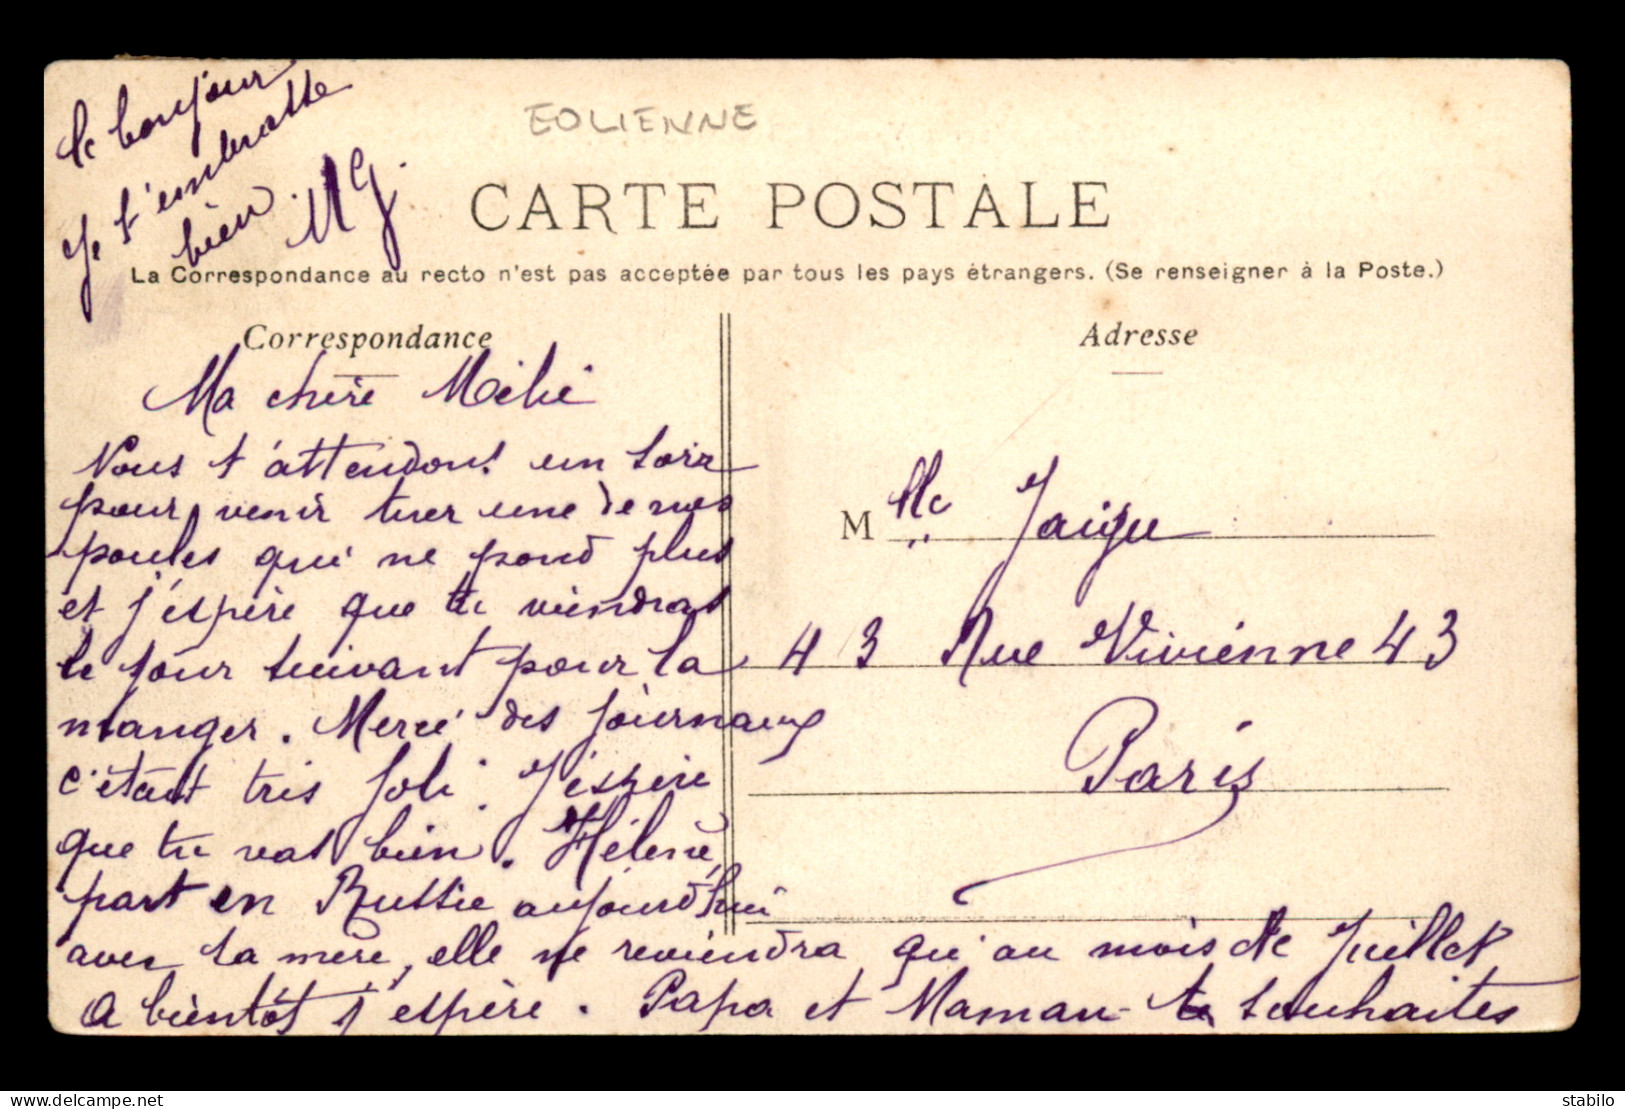 EOLIENNE
CARTE POSTALE
La Correspondance au recto n'est pas acceptée par tous les pays étrangers. (Se renseigner à la Poste.)
Correspondance
Ma chère
Nous t'attendons un soir
pour venir tuer une de nos
poules qui ne pond plus
et j'espère que tu viendras
le jour suivant pour la
manger. Merci des journaux
c'était très joli. J'espère
que tu vas bien. Hélène
part en Russie aujourd'hui
avec sa mère, elle ne reviendra qu'au mois de Juillet
A bientôt j'espère. Papa et Maman te souhaites
le bonjour
Je t'embrasse
bien. MG.
Adresse
Mlle Jaigu
43 Rue Viviènne 43
Paris
delcampe.net
stabilo